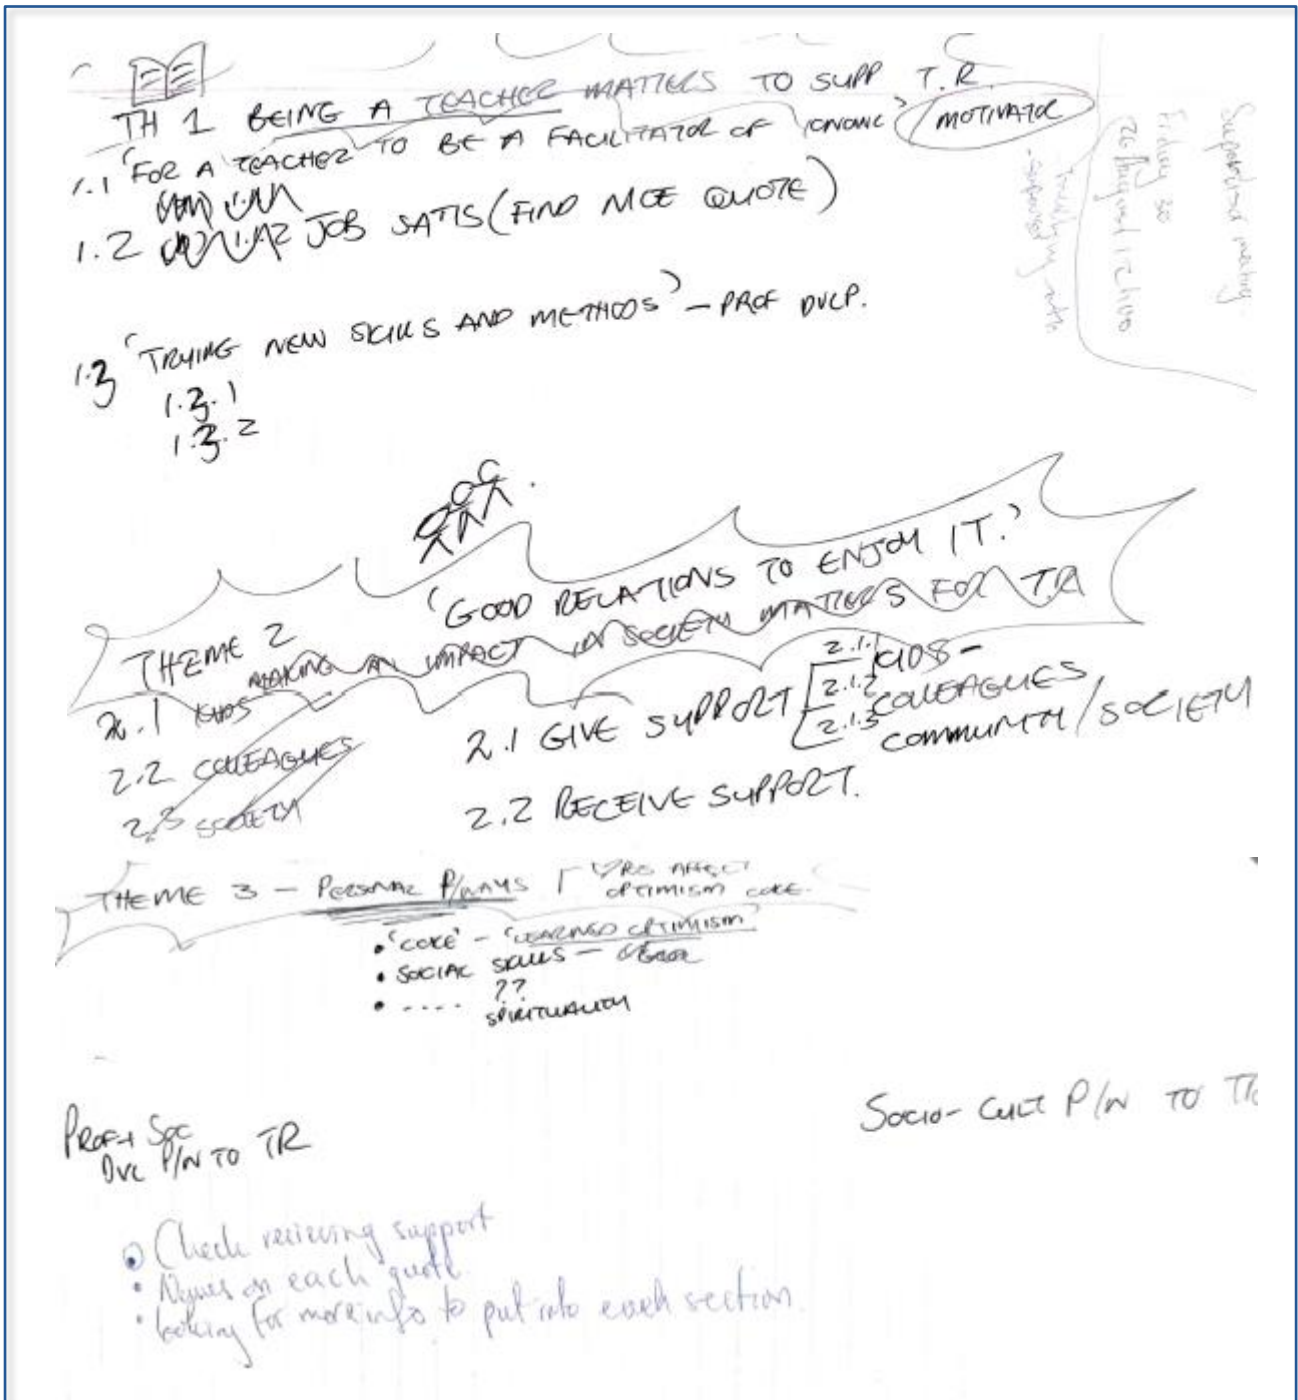 TH 1 BEING A TEACHER MATTERS TO SUPP T.R.
1.1 'FOR A TEACHER TO BE A FACILITATOR OF MOTIVATOR
1.2 JOB SATIS (FIND NICE QUOTE)
1.3 'TRYING NEW SKILLS AND METHODS' - PROF DVLP.
1.3.1
1.3.2
Supervisor meeting
Friday 30
26 August 12h00
- supervisor
'GOOD RELATIONS TO ENJOY IT.'
THEME 2
MAKING AN IMPACT IN SOCIETY MATTERS FOR T.R
2.1 KIDS
2.2 COLLEAGUES
2.3 SOCIETY
2.1 GIVE SUPPORT
2.1.1 KIDS -
2.1.2 COLLEAGUES
2.1.3 COMMUNITY/SOCIETY
2.2 RECEIVE SUPPORT.
THEME 3 - PERSONAL P/WAYS AFFECT
OPTIMISM CORE.
• 'CORE' - 'LEARNED OPTIMISM'
• SOCIAL SKILLS -
• .... ??
SPIRITUALITY
PROF + SOC
DVL P/W TO TR
SOCIO-CULT P/W TO TR
• Check recieving support
• on each quote
• looking for more info to put into each section.